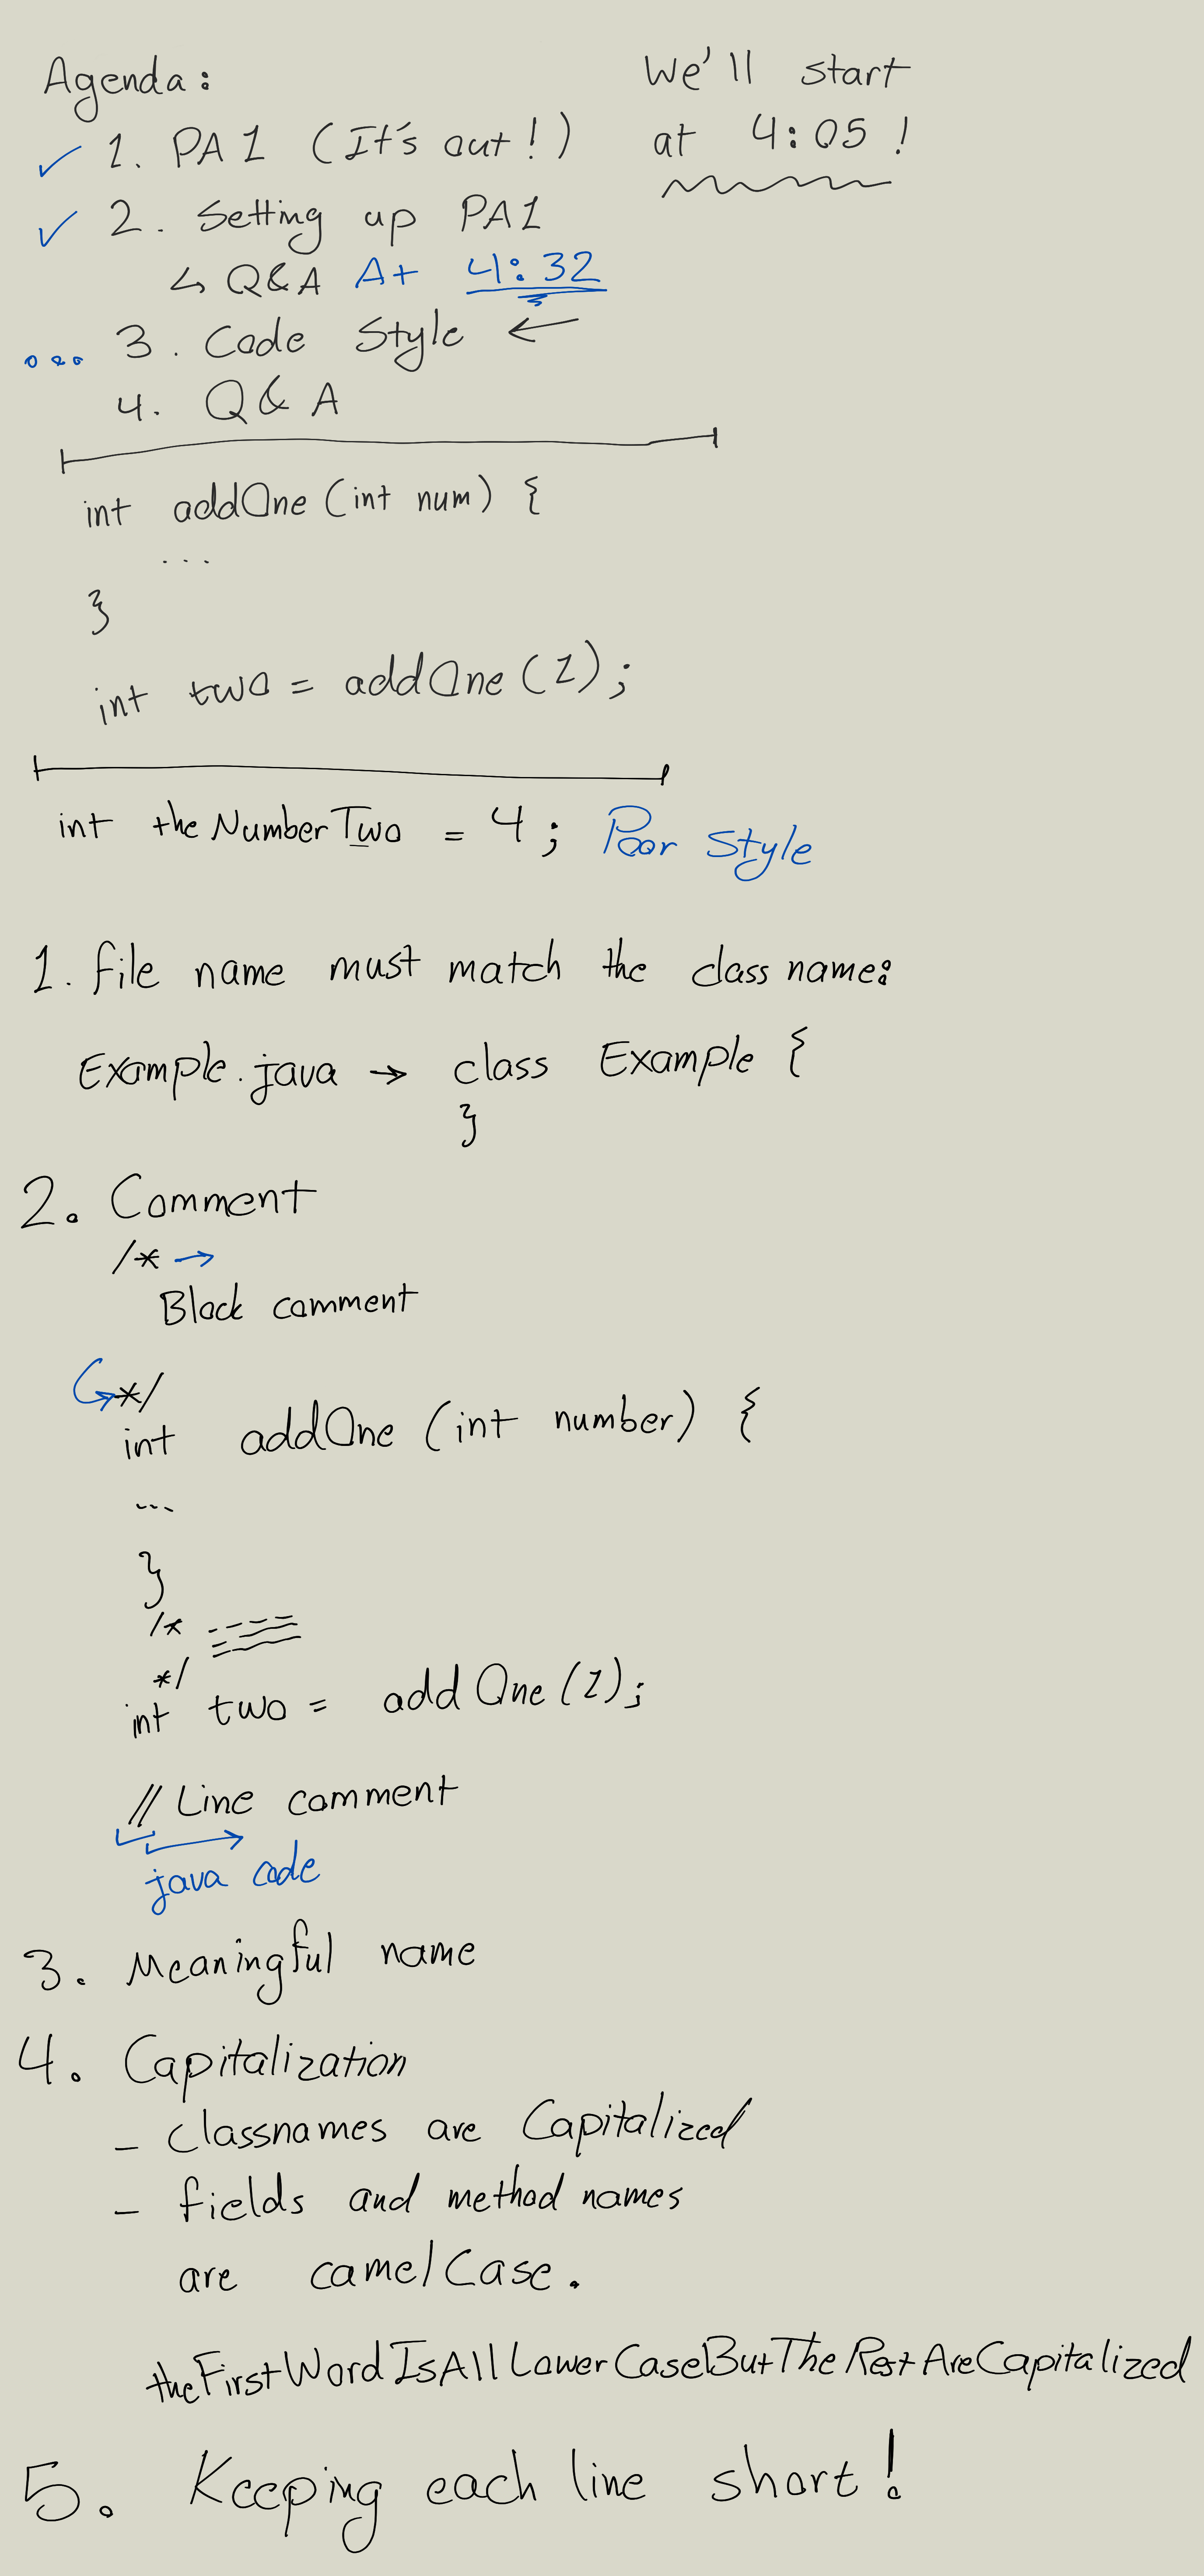 Agenda:
We'll start
at 4:05!
1. PA1 (It's out!)
2. Setting up PA1
↳ Q&A At 4:32
... 3. Code Style ←
4. Q & A
int addOne (int num) {
...
}
int two = addOne (1);
int theNumberTwo = 4; Poor Style
1. file name must match the class name:
Example.java → class Example {
}
2. Comment
/* →
Block comment
*/
int addOne (int number) {
...
}
/*
*/
int two = addOne (1);
// Line comment
java code
3. Meaningful name
4. Capitalization
- classnames are Capitalized
- fields and method names
are camelCase.
theFirstWordIsAllLowerCaseButTheRestAreCapitalized
5. Keeping each line short!